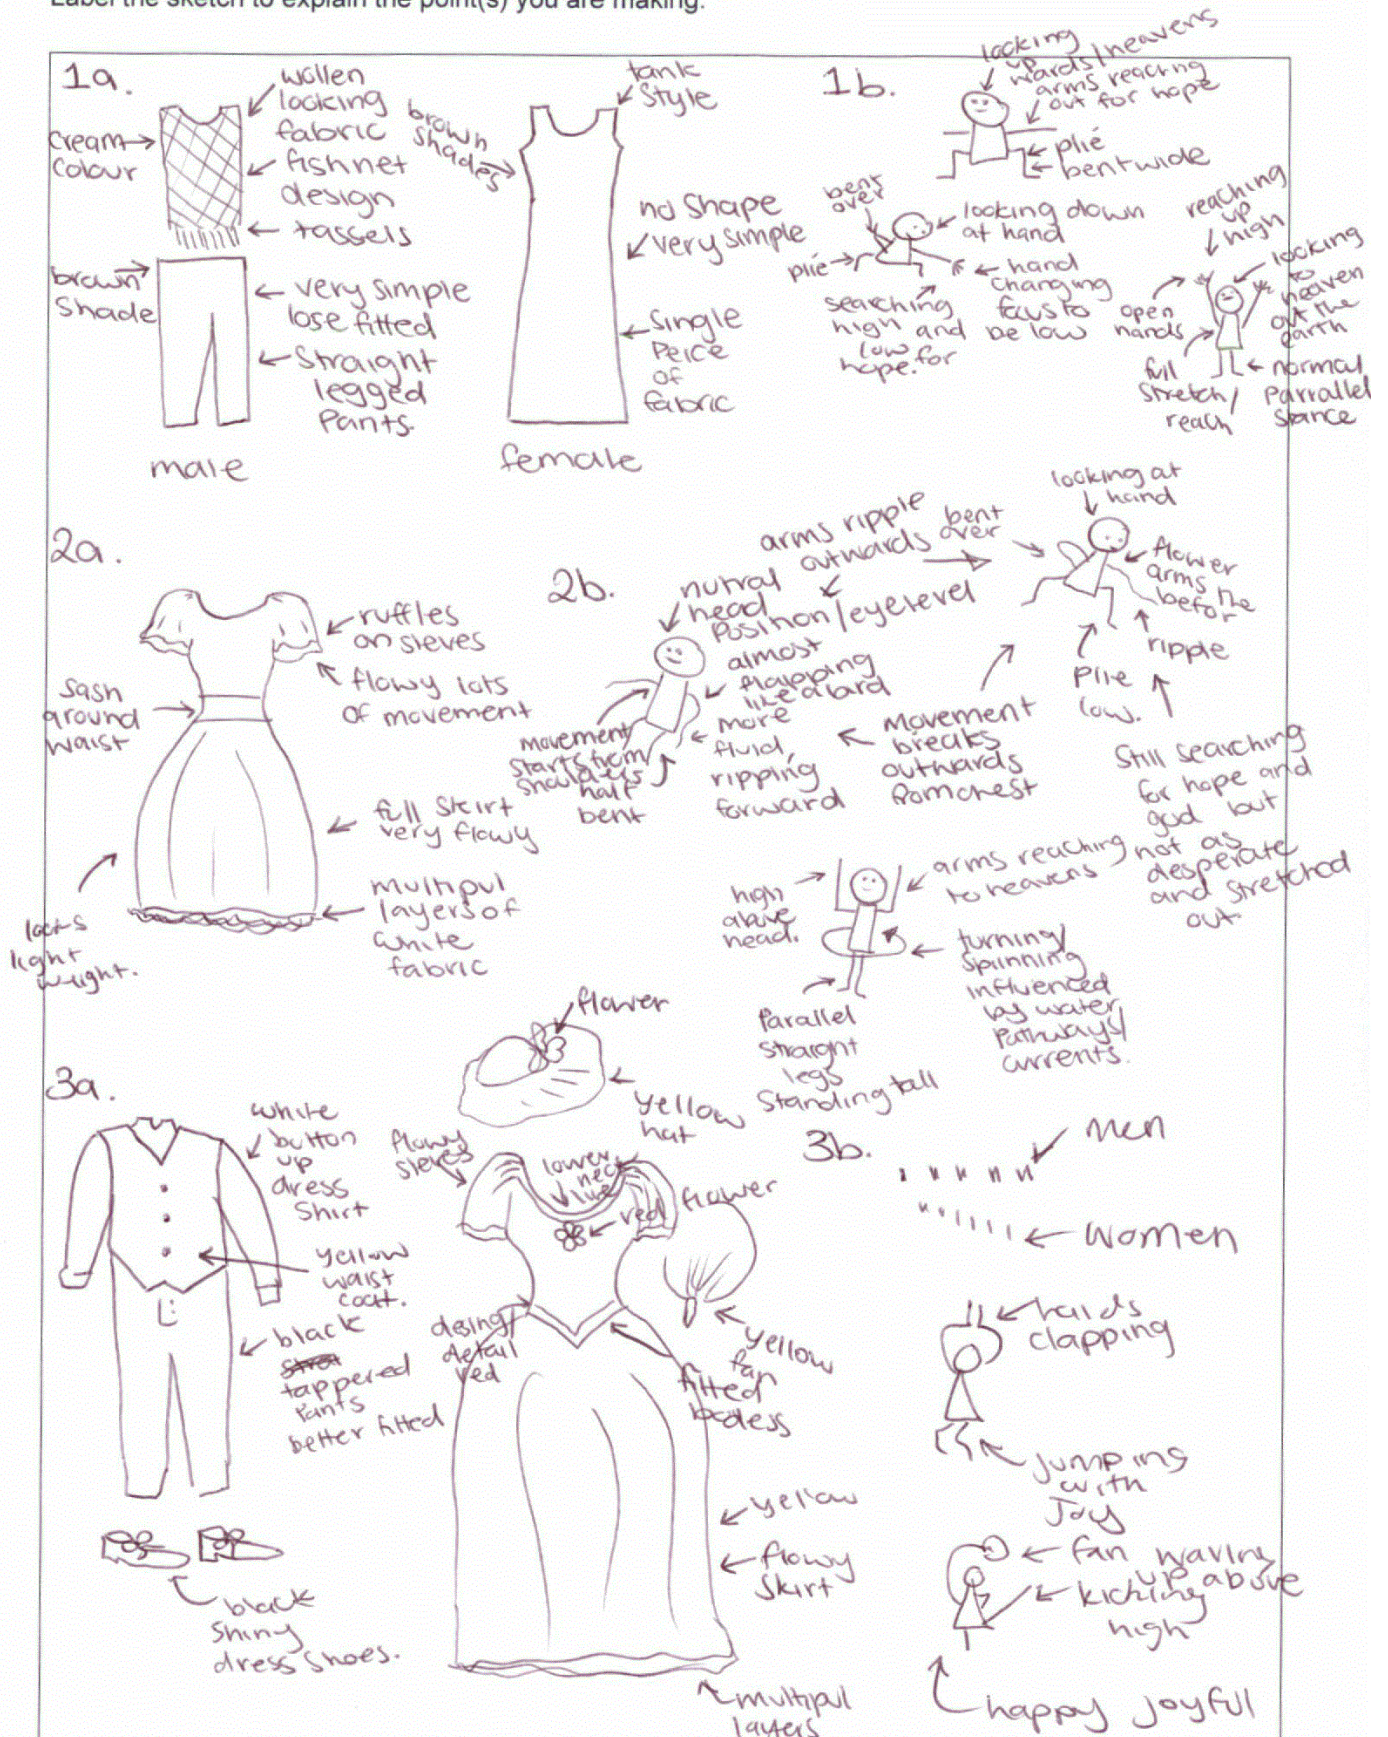 Label the sketch to explain the point(s) you are making.
1a.
wollen
looking
fabric
cream
colour
fishnet
design
tassels
brown
shade
very simple
lose fitted
straight
legged
pants.
male
tank
style
brown
shades
no shape
very simple
single
peice
of
fabric
female
1b.
looking
up
wards/heavens
arms reacing
out for hope
plié
bent wide
bent
over
looking down
at hand
plié
hand
changing
focus to
be low
searching
high and
low
hope.for
reaching
up
high
looking
to
heaven
out the
earth
open
hands
full
stretch/
reach
normal
parrallel
stance
2a.
ruffles
on sleves
flowy lots
of movement
sash
around
waist
full skirt
very flowy
multipul
layers of
white
fabric
light
2b.
arms ripple
outwards
nutral
head
position/eyelevel
almost
flapping
like a bard
more
fluid,
ripping
forward
movement
starts from
half
bent
bent
over
looking at
hand
flower
arms the
befor
ripple
plie
low.
movement
breaks
outwards
fromchest
Still searching
for hope and
god but
not as
desperate
and stretched
out
high
above
head.
arms reaching
to heavens
turning/
spinning
influenced
by water
pathways/
currents.
parallel
straight
legs
standing tall
3a.
white
button
up
dress
shirt
yellow
waist
coat.
black
tappered
pants
better fitted
black
shiny
dress shoes.
flower
yellow
hat
flowy
sleves
lower
neck
line
red flower
desing/
detail
red
yellow
fan
fitted
bodess
yellow
flowy
skirt
multipul
layers
3b.
men
women
hands
clapping
jumping
with
joy
fan waving
up above
kicking
high
happy joyfull